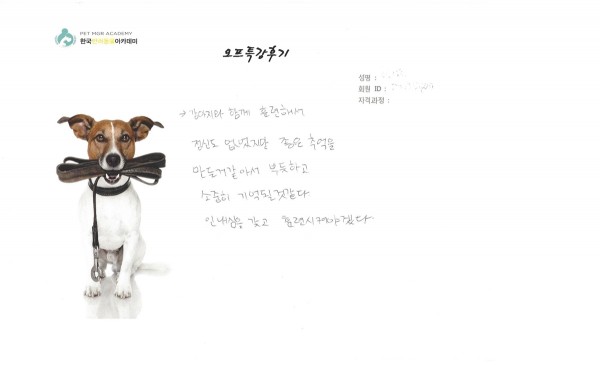 PET MGB ACADEMY
한국반려동물아카데미
오프특강후기
성명 :
회원 ID :
자격과정 :
강아지와 함께 훈련해서
정신도 없었지만 좋은 추억을
만든거같아서 뿌듯하고
소중히 기억될것같다
인내심을 갖고 훈련시켜야겠다